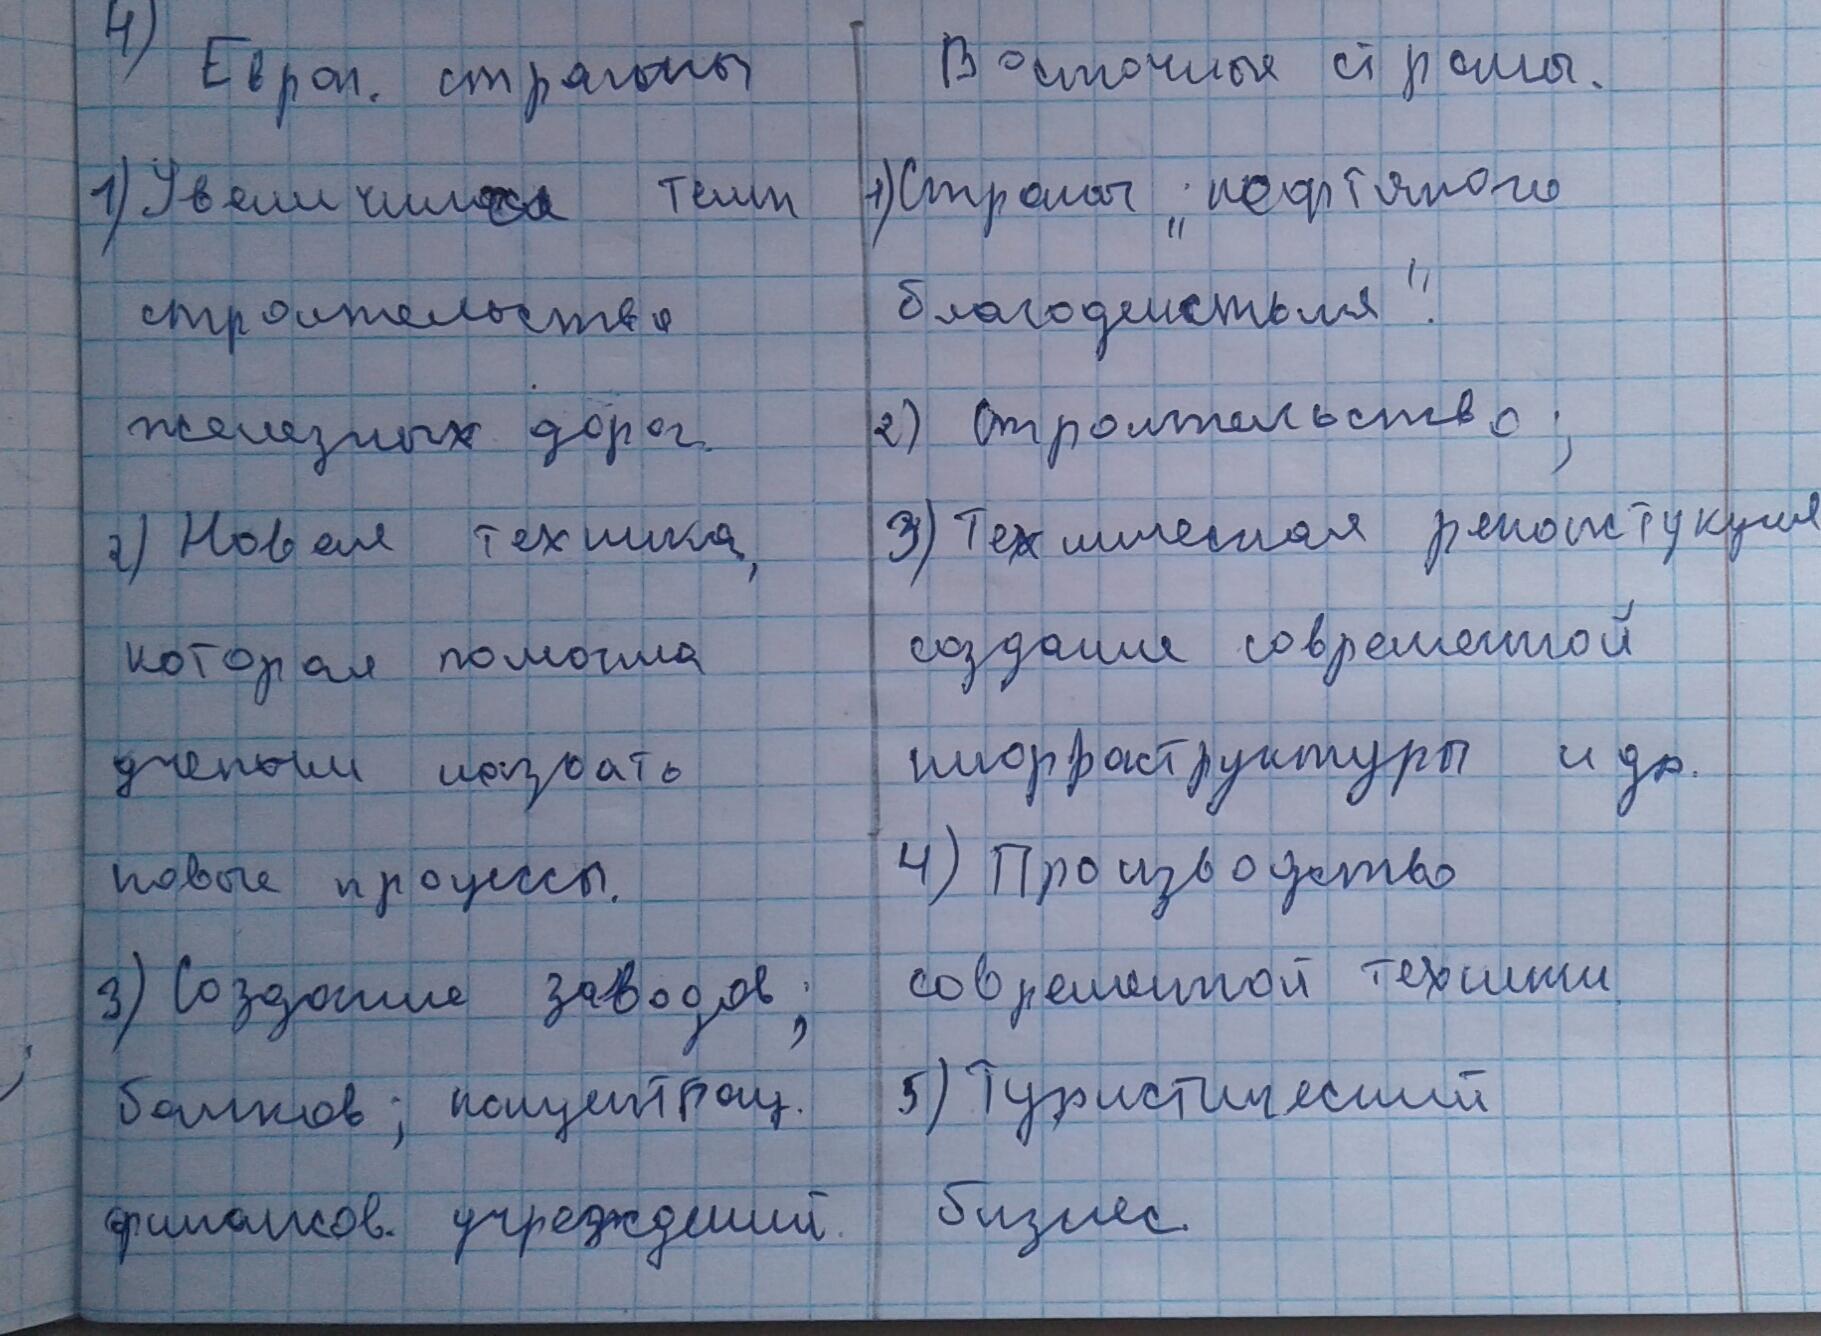 4)
Европ. страны
1) Увеличился темп
строительства
железных дорог.
2) Новая техника,
которая помогла
ученым назвать
новые процессы.
3) Создание заводов;
банков; концентрац.
финансов. учреждений.
Восточные страны.
1) Страны „нефтяного
благоденствия".
2) Строительство;
3) Техническая реконстукция
создание современной
инфраструктуры и др.
4) Производство
современной техники
5) Туристический
бизнес.